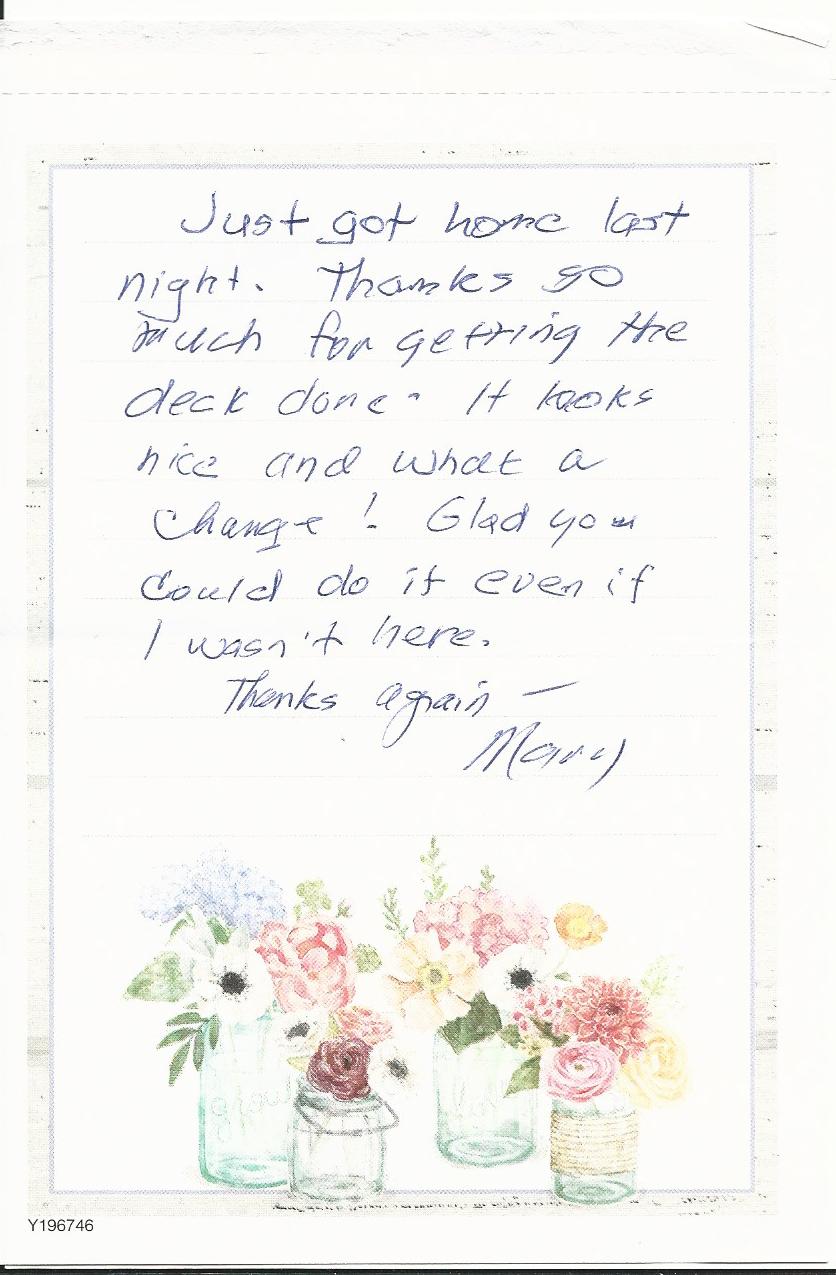 Just got home last
night. Thanks so
much for getting the
deck done. It looks
nice and what a
change! Glad you
could do it even if
I wasn't here.
Thanks again —
Mary
grow
Y196746